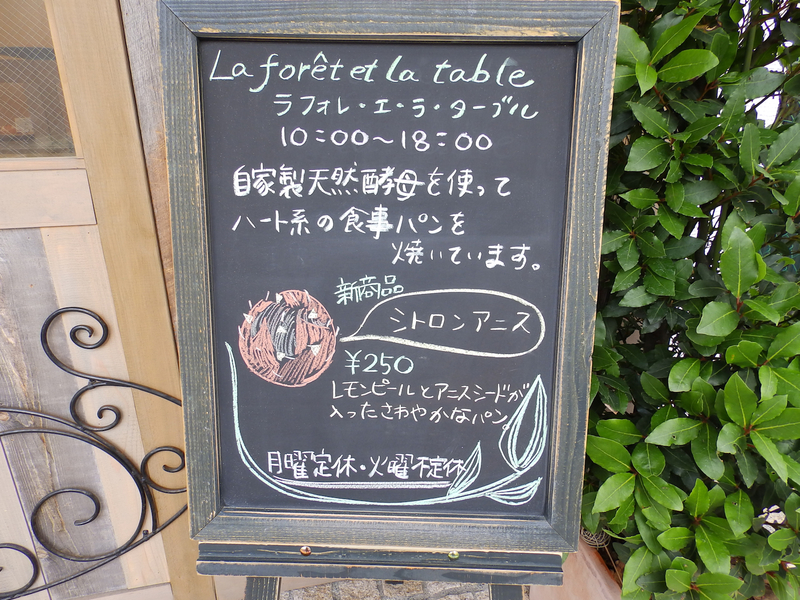 La forêt et la table
ラフォレ・エ・ラ・ターブル
10:00～18:00
自家製天然酵母を使って
ハート系の食事パンを
焼いています。
新商品
シトロンアニス
¥250
レモンピールとアニスシードが
入ったさわやかなパン。
月曜定休・火曜不定休